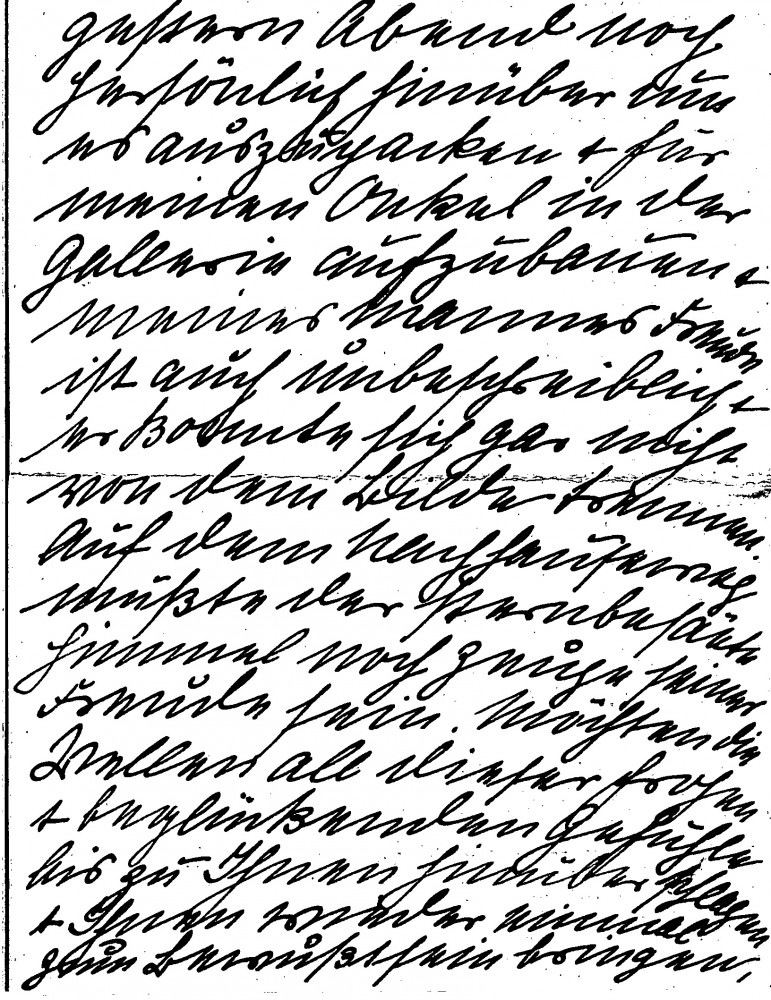 gestern Abend noch
persönlich hinüber um
es auszupacken + für
meinen Onkel in der
Gallerie aufzubauen +
meines Mannes Freude
ist auch unbeschreiblich +
er konnte sich gar nicht
von dem Bilde trennen.
Auf dem Nachhauseweg
mußte der sternbesäete
Himmel noch Zeuge seiner
Freude sein. Möchten die
Wellen all dieser frohen
+ beglückenden Gefühle
bis zu Ihnen hinüber schlagen
+ Ihnen wieder einmal
zum Bewußtsein bringen,